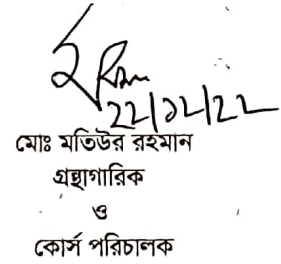 22/12/22
মোঃ মতিউর রহমান
গ্রন্থাগারিক
ও
কোর্স পরিচালক